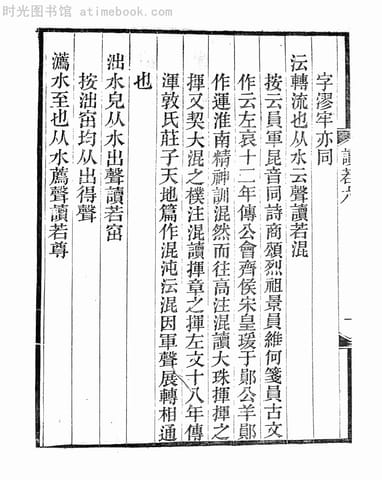 时光图书馆 - atimebook.com
字漻牢亦同
沄轉流也从水云聲讀若混
按云員軍昆音同詩商頌烈祖景員維何箋員古文
作云左哀十二年傳公會齊侯宋皇瑗于鄖公羊鄖
作運淮南精神訓混然而往高注混讀大珠揮揮之
揮又契大混之樸注混讀揮章之揮左文十八年傳
渾敦氏莊子天地篇作混沌沄混因軍聲展轉相通
也
泏水皃从水出聲讀若窋
按泏窋均从出得聲
瀳水至也从水薦聲讀若尊
讀若六